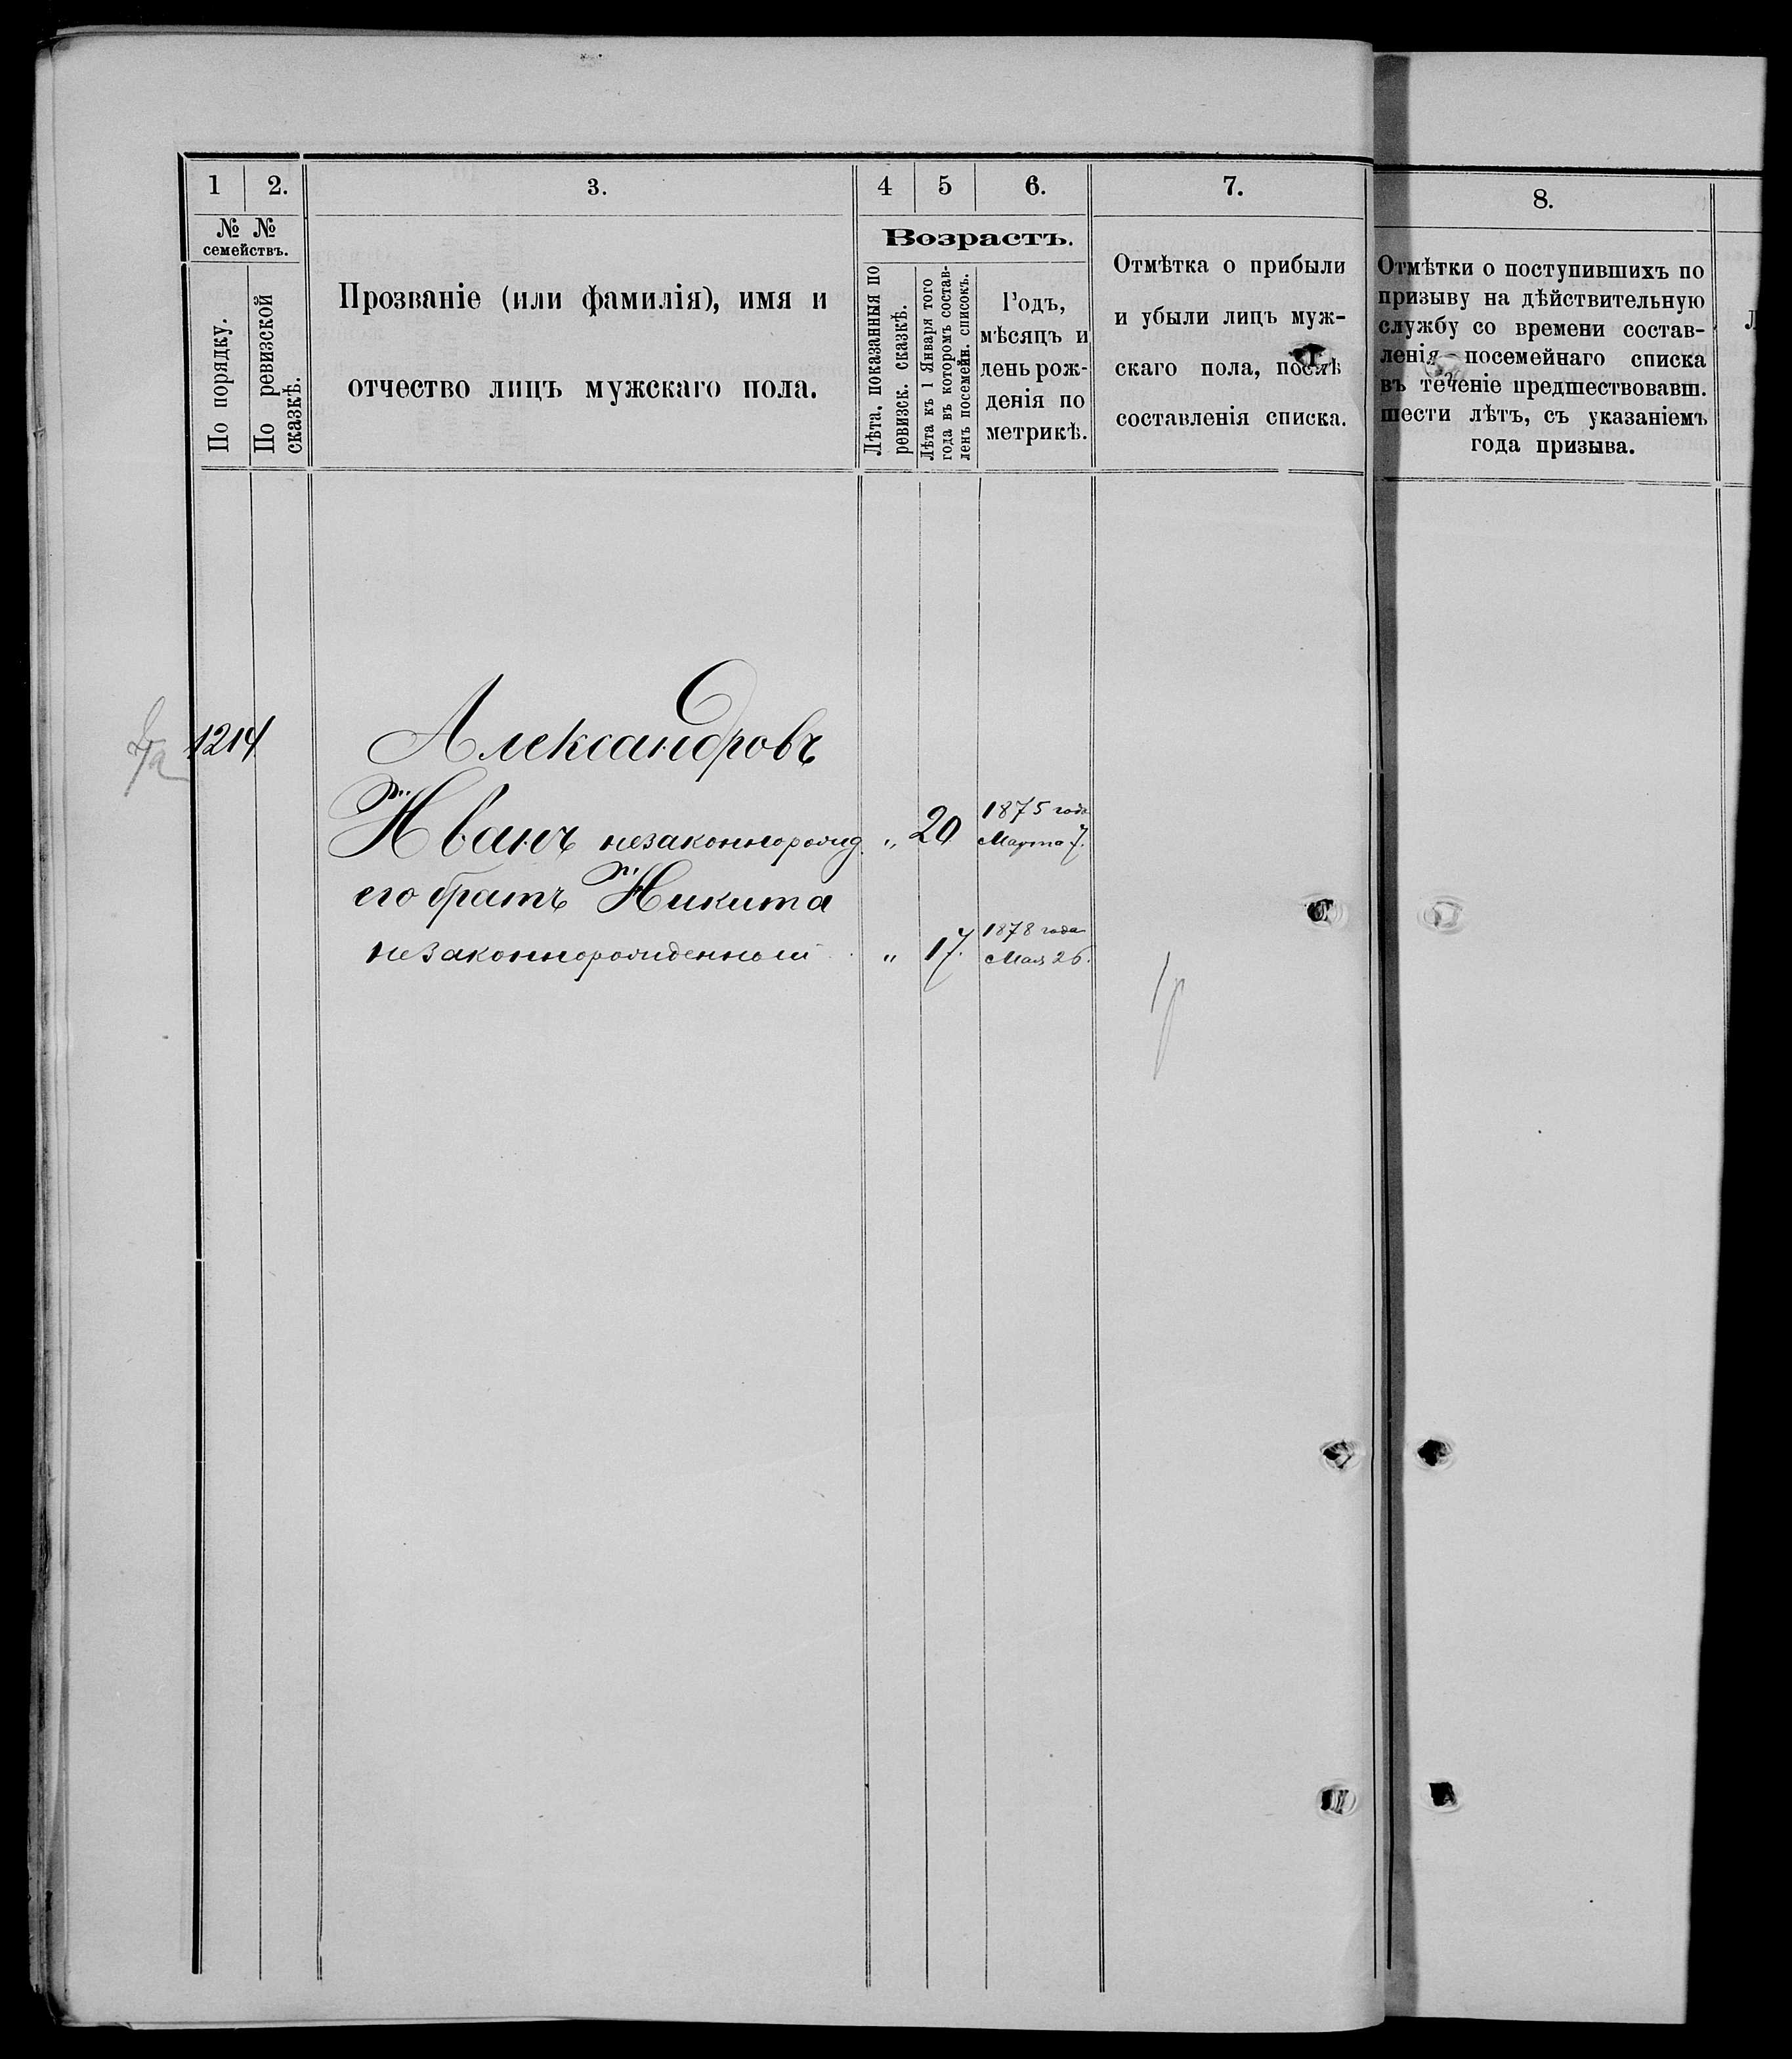 1 2. 3. 4 5 6. 7. 8.
№ №
семействъ.
По порядку.
По ревизской
сказкѣ.
Прозваніе (или фамилія), имя и
отчество лицъ мужскаго пола.
Возрастъ.
Лѣта, показанныя по
ревизск. сказкѣ.
Лѣта къ 1 Января того
года въ которомъ состав-
ленъ посемейн. списокъ.
Годъ,
мѣсяцъ и
день рож-
денія по
метрикѣ.
Отмѣтка о прибыли
и убыли лицъ муж-
скаго пола, послѣ
составленія списка.
Отмѣтки о поступившихъ по
призыву на дѣйствительную
службу со времени состав-
ленія посемейнаго списка
въ теченіе предшествовавш.
шести лѣтъ, съ указаніемъ
года призыва.
1214
Александровъ
Иванъ незаконнорожд. " 20 1875 года
Марта 7.
его братъ Никита
незаконнорожденный " 17. 1878 года
Мая 26.